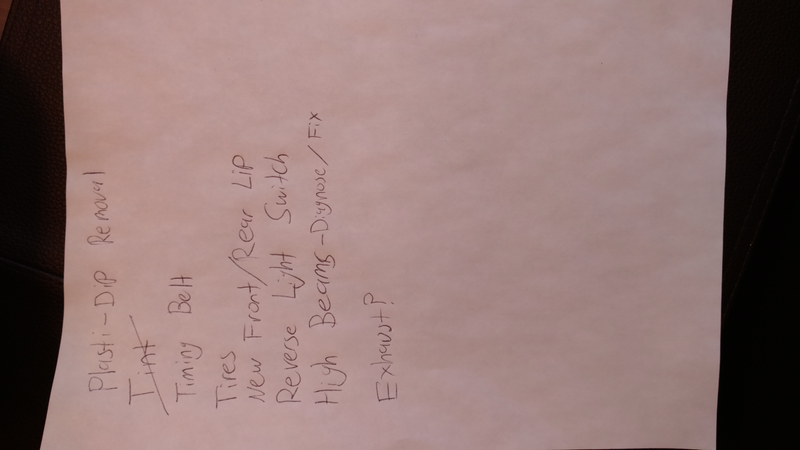 Plasti-Dip Removal
Tint
Timing Belt
Tires
New Front/Rear Lip
Reverse Light Switch
High Beams-Diagnose/Fix
Exhaust?